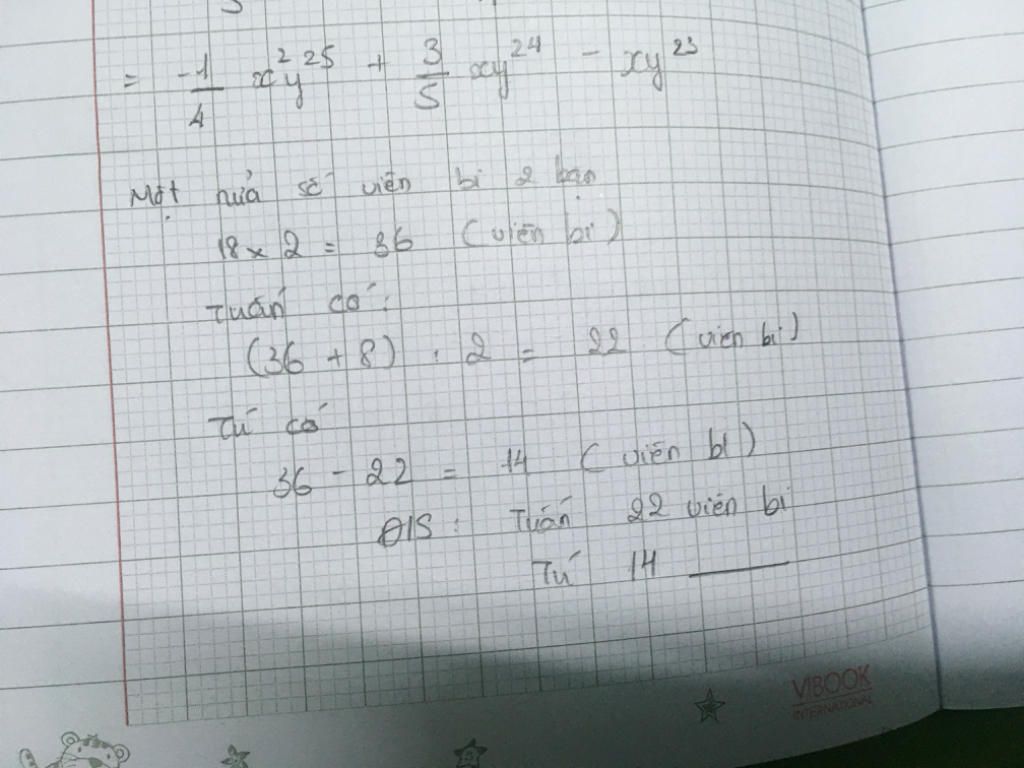 = -1/4 x²y²⁵ + 3/5 xy²⁴ - xy²³
Một nửa số viên bi 2 bạn
18 x 2 = 36 (viên bi)
Tuấn có:
(36 + 8) : 2 = 22 (viên bi)
Tú có
36 - 22 = 14 (viên bi)
Đ/S: Tuấn 22 viên bi
Tú 14 ———
VIBOOK
INTERNATIONAL